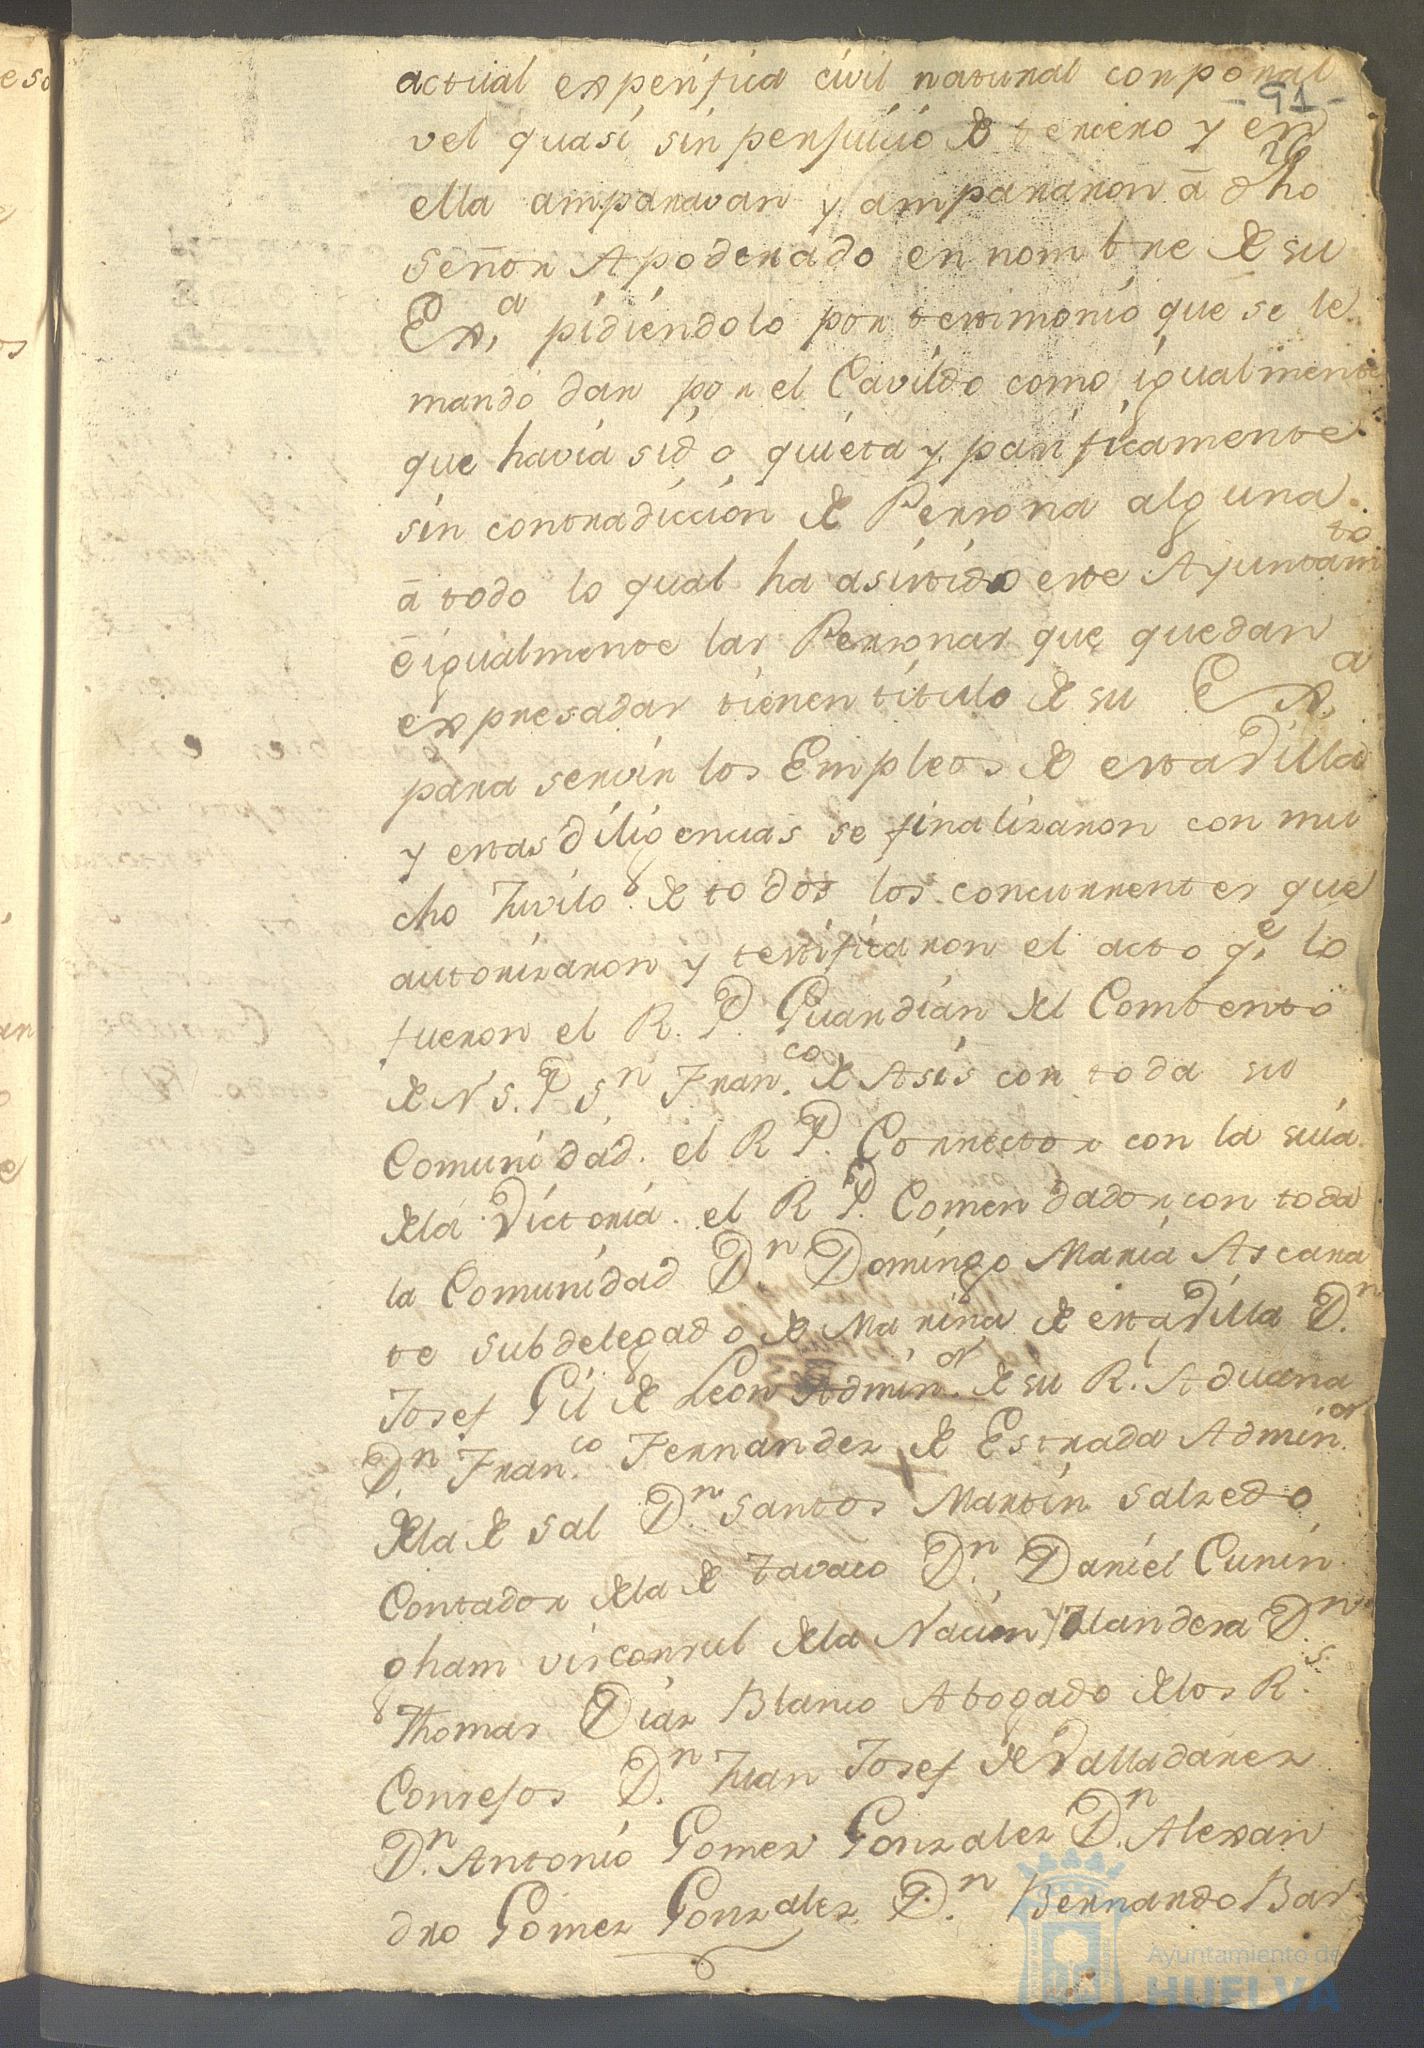 actual expenfica civil natural conporal
- 91 -
vel quasi sin perjuicio de tercero y en
26
ella amparavan y ampararon â dho
señor Apoderado en nombre de su
Exª. pidiendolo por testimonio que se le
mandó dar por el Cavildo como igualmente
que havia sido quieta y pacificamente
sin contradiccion de Persona alguna.
â todo lo qual ha asistido este Ayuntamto
ê igualmente las Personas que quedan
expresadas tienen titulo de su Exª.
para servir los Empleos de esta Villa
y estas diligencias se finalizaron con mu
cho Juvilo de todos los concurrentes que
autorizaron y testificaron el acto qe. lo
fueron el R. P. Guardian del Combento
de N S. P Sn Franco. de Asis con toda su
Comunidad. el R P. Corrector con la suia
de la Victoria. el R P. Comendador con toda
la Comunidad Dn. Domingo Maria Ascara
te subdelegado de Marina de esta Villa Dn.
Josef Gil de Leon Adminor. de su Rl. Aduana
Dn. Franco. Fernandez de Estrada Adminor.
de la de Sal Dn. Santos Martin Salzedo
Contador de la de Tavaco Dn. Daniel Cunin
gham visconsul de la Nacion Ylandesa Dn.
Thomas Diaz Blanco Abogado de los Rs.
Consejos Dn. Juan Josef de Valladarez
Dn. Antonio Gomez Gonzalez Dn. Alexan
dro Gomez Gonzalez Dn. Bernardo Bar
Ayuntamiento de
HUELVA